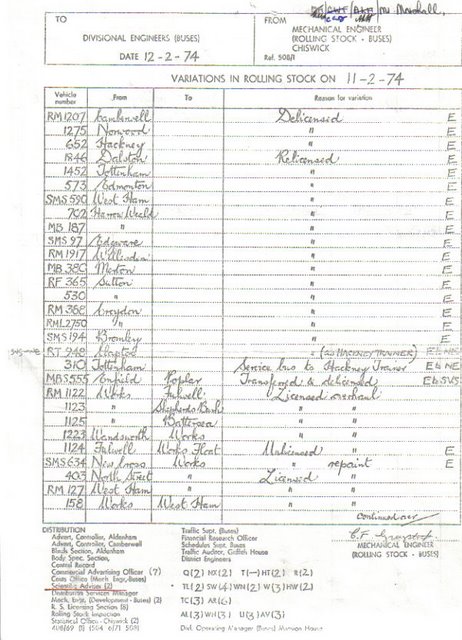 TO
DIVISIONAL ENGINEERS (BUSES)
DATE 12-2-74
Marshall.
FROM
MECHANICAL ENGINEER
(ROLLING STOCK - BUSES)
CHISWICK
Ref. 508/1
VARIATIONS IN ROLLING STOCK ON 11-2-74
Vehicle number From To Reason for variation
RM1207 Camberwell Delicensed E
1275 Norwood " E
652 Hackney " E
1846 Dalston Relicensed E
1452 Tottenham " E
573 Edmonton " E
SMS 590 West Ham " E
702 Harrow Weald " E
MB 187 " " E
SMS 97 Edgware " E
RM 1917 Willesden " E
MB 380 Merton " E
RF 365 Sutton " E
530 " " E
RM 388 Croydon " E
RML2750 " " E
SMS 194 Bromley " E
RT 948 Clapton " (as HACKNEY TRAINER) E & NE
310 Tottenham Service bus to Hackney Trainer E & NE
MBS 555 Enfield Poplar Transferred & delicensed E & SVS
RM 1122 Works Fulwell Licensed overhaul
1123 " Shepherds Bush " "
1125 " Battersea " "
1223 Wandsworth Works " "
1124 Fulwell Works Float Unlicensed " E
SMS 634 New Cross Works " repaint E
403 North Street " Licensed "
RM 127 West Ham " " "
158 Works West Ham " "
continued over
MECHANICAL ENGINEER
(ROLLING STOCK - BUSES)
DISTRIBUTION
Advert. Controller, Aldenham
Advert. Controller, Camberwell
Block Section, Aldenham
Body Spec. Section,
Control Record
Commercial Advertising Officer (7)
Costs Office (Mech. Engr. Buses)
Scientific Adviser (2)
Distribution Services Manager
Mech. Engr. (Development - Buses) (2)
R. S. Licensing Section (6)
Rolling Stock Inspection
Statistical Office - Chiswick (2)
Traffic Supt. (Buses)
Financial Research Officer
Schedules Supt. Buses
Traffic Auditor, Griffith House
District Engineers
Q(2) NX(2) T(—) HT(2) R(2)
TL(2) SW(4) WN(2) W(3) HW(2)
TC(3) AR(6)
AL(3) WH(3) U(3) AV(3)
Divl. Operating Manager (Buses) Manson House